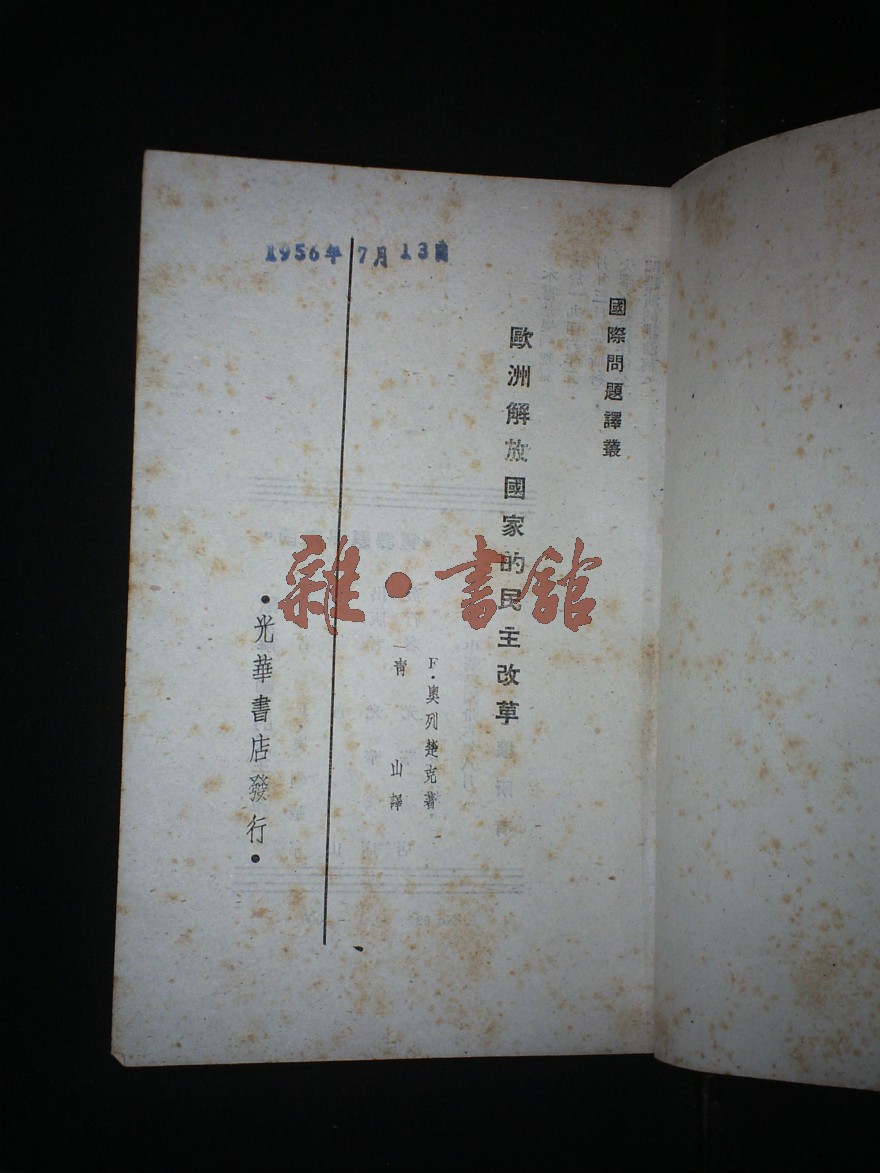 1956年7月13日
國際問題譯叢
歐洲解放國家的民主改革
F·奧列楚克著
青山譯
•光華書店發行•
雜·書館